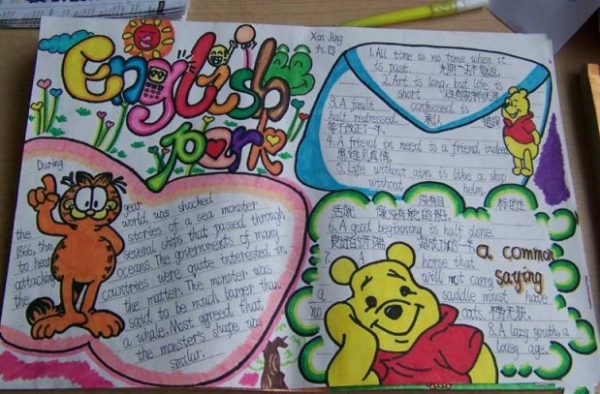 English
park
Xon Jing
1. All time is no time when it
is past.
2. Art is long, but life is
short
3. A fault confessed is
half redressed. 承认
等于改正了一半.
4. A friend in need is a friend indeed
患难见真情.
5. Life without aim is like a ship
without helm.
活就 像没有舵的船.
6. A good beginning is half done.
良好的开端 是成功的一半
7. A horse that
will not carry
a saddle must have
no oats. 不劳无获.
8. A lazy youth, a
lousy age.
a common
saying
During
the year
1866, the world was shocked
to hear stories of a sea monster
attacking several ships that passed through
the oceans. The governments of many
countries were quite interested in
the matter. The monster was
said to be much larger than
a whale. Most agreed that
the monster's shape was
similar.